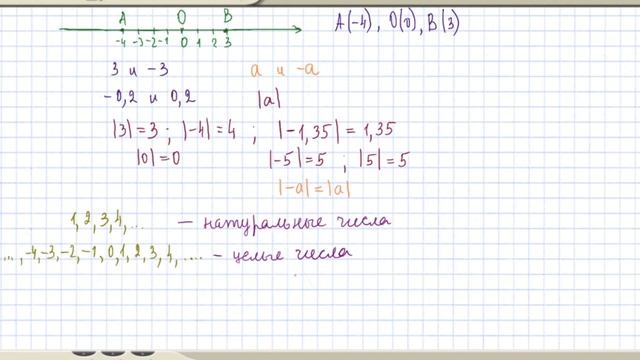 A O B A(-4), O(0), B(3)
-4 -3 -2 -1 0 1 2 3
3 и -3 a и -a
-0,2 и 0,2 |a|
|3|=3 ; |-4|=4 ; |-1,35|=1,35
|0|=0 |-5|=5 ; |5|=5
|-a|=|a|
1, 2, 3, 4, ... — натуральные числа
..., -4, -3, -2, -1, 0, 1, 2, 3, 4, .... - целые числа